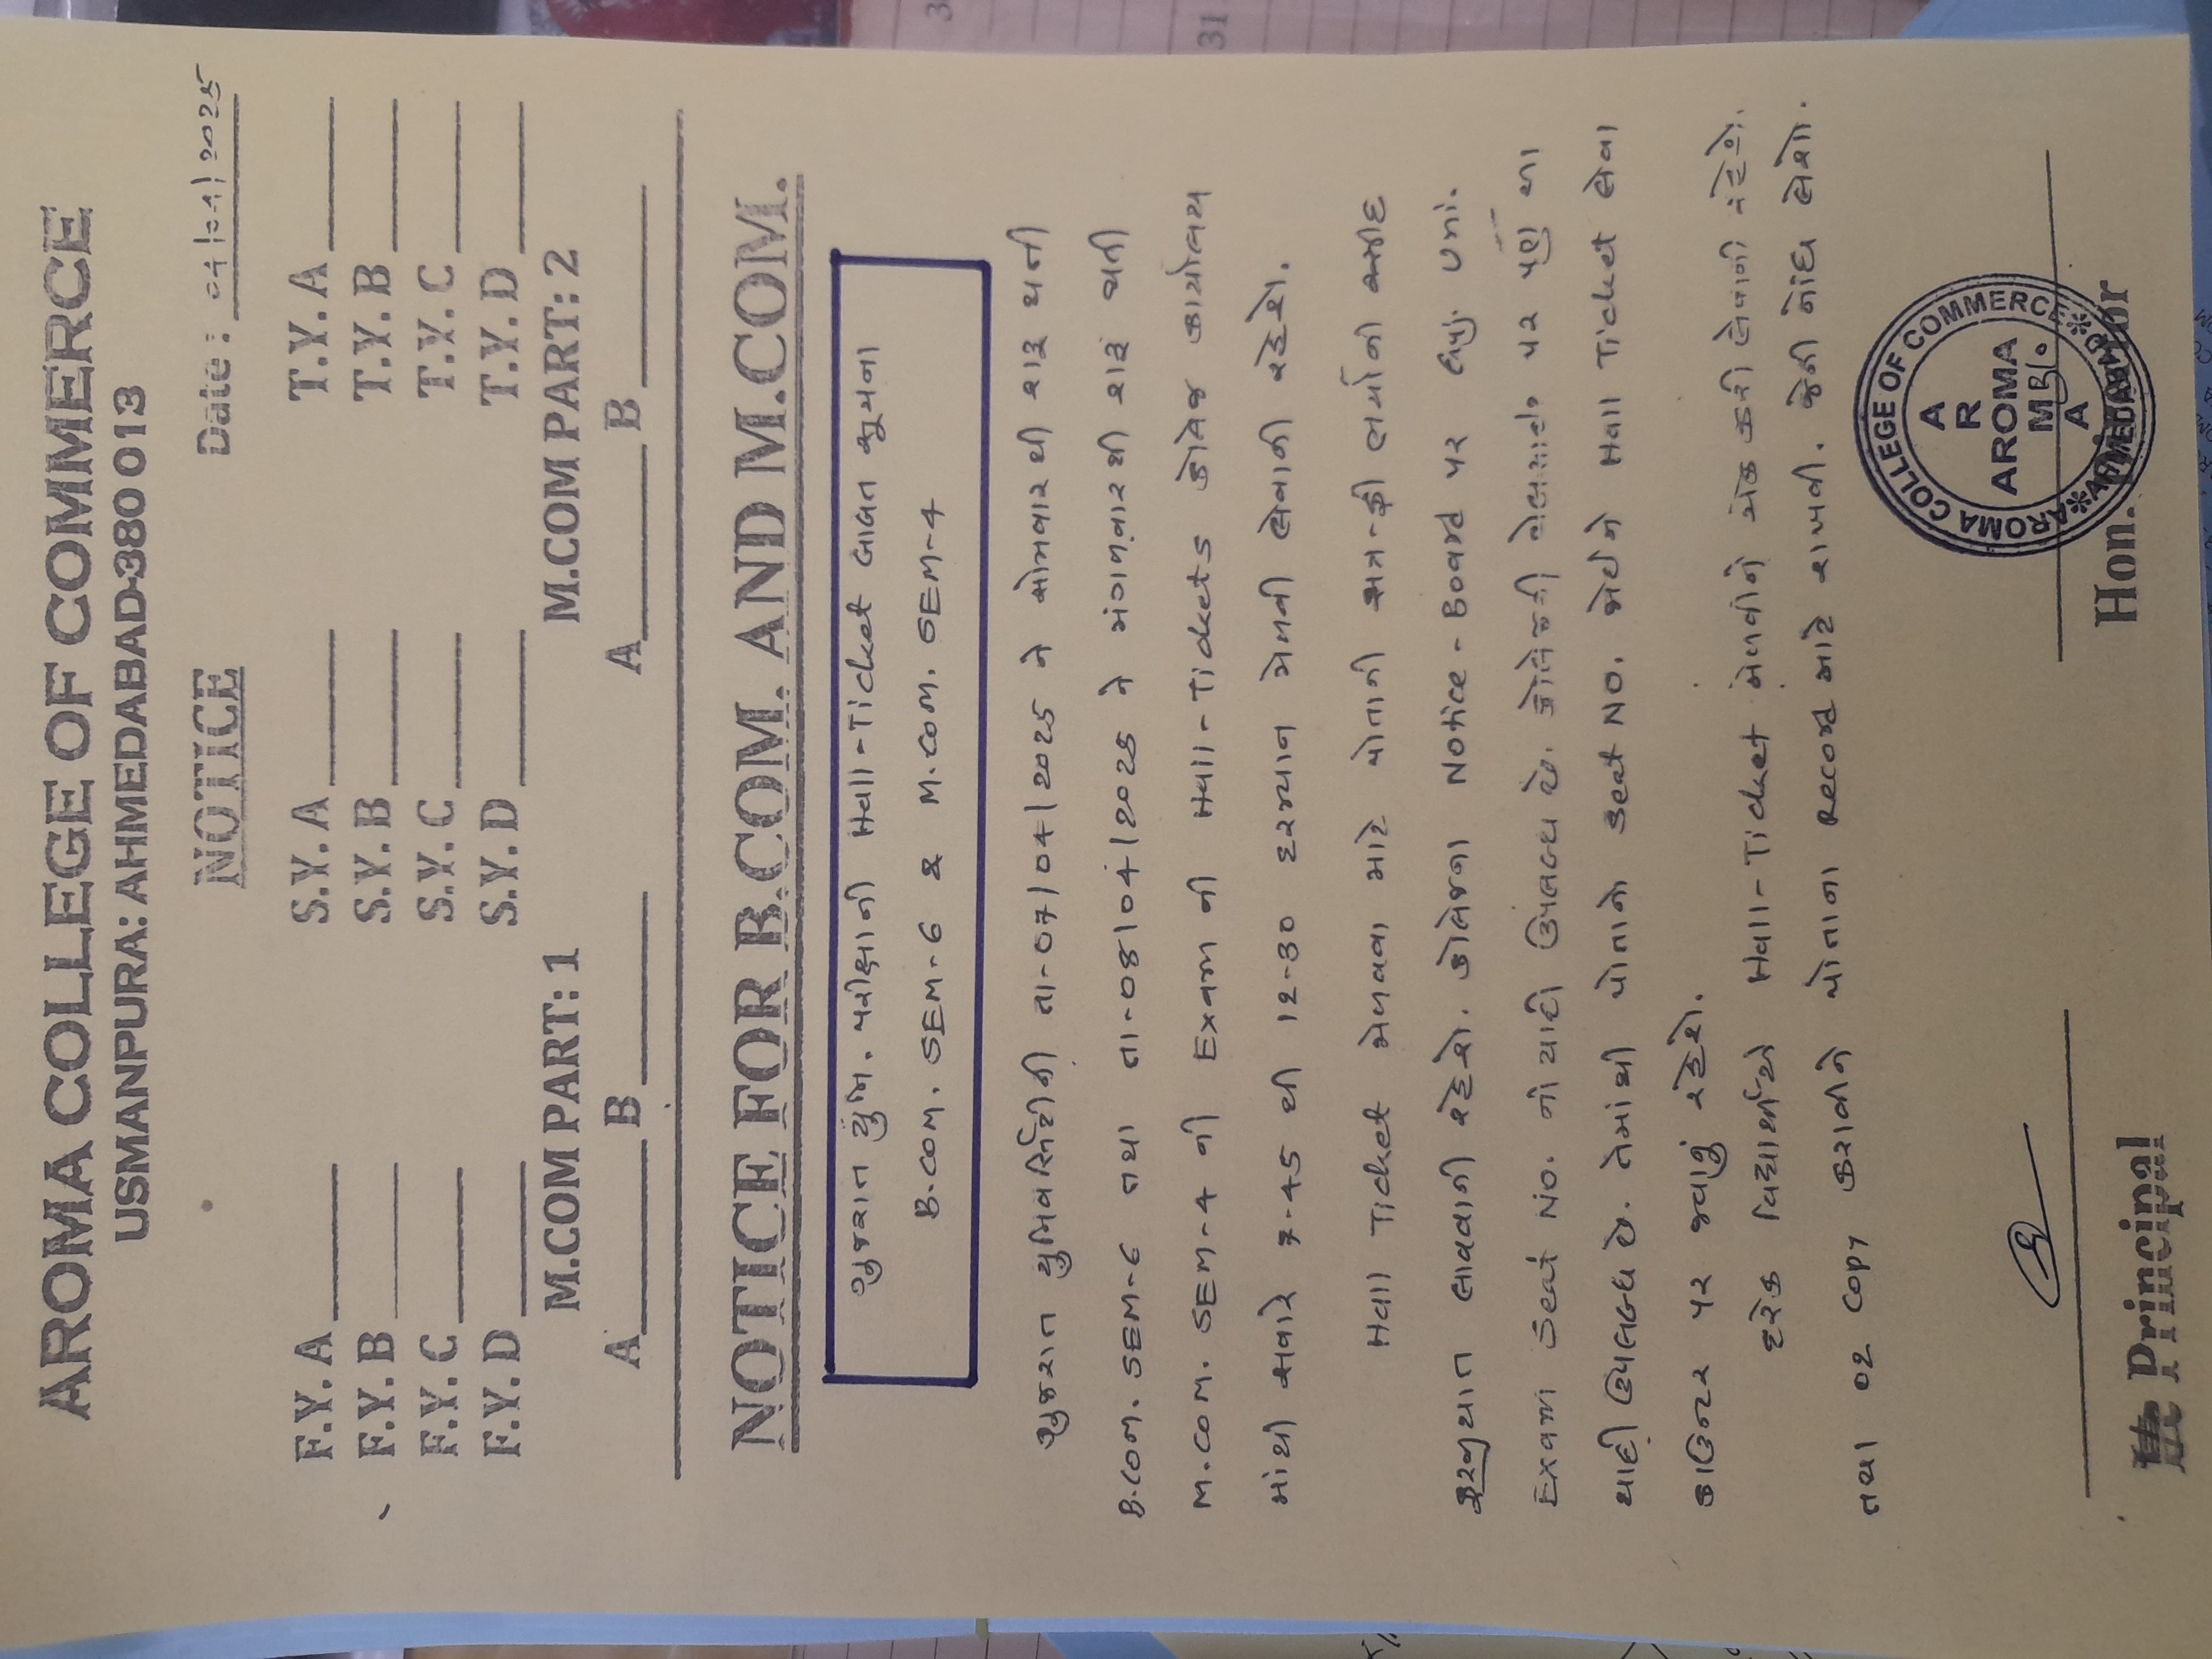 AROMA COLLEGE OF COMMERCE
USMANPURA: AHMEDABAD-380 013
NOTICE
Date: 04/04/2025
F.Y. A S.Y. A T.Y. A
F.Y. B S.Y. B T.Y. B
F.Y. C S.Y. C T.Y. C
F.Y. D S.Y. D T.Y. D
M.COM PART: 1 M.COM PART: 2
A B A B
NOTICE FOR B.COM. AND M.COM.
ગુજરાત યુનિ. પરીક્ષાની Hall-Ticket બાબત સૂચના
B.COM. SEM-6 & M.COM. SEM-4
ગુજરાત યુનિવર્સિટીની તા-07/04/2025 ને સોમવાર થી શરૂ થતી
B.COM. SEM-6 તથા તા-08/04/2025 ને મંગળવારથી શરૂ થતી
M.COM. SEM-4 ની Exam ની Hall-Tickets કોલેજ કાર્યાલય
માંથી સવારે 7-45 થી 12-30 દરમ્યાન મેળવી લેવાની રહેશે.
Hall Ticket મેળવવા માટે પોતાની સત્ર-ફી ભર્યાની રસીદ
ફરજીયાત લાવવાની રહેશે. કોલેજના Notice-Board પર ગુજ. યુનિ.
Exam Seat No. ની યાદી ઉપલબ્ધ છે. કોલેજની વેબસાઈટ પર પણ આ
યાદી ઉપલબ્ધ છે. તેમાંથી પોતાનો Seat NO. જોઈને Hall Ticket લેવા
કાઉન્ટર પર જવાનું રહેશે.
દરેક વિદ્યાર્થીએ Hall-Ticket મેળવીને ચેક કરી લેવાની રહેશે.
તથા 02 Copy કરાવીને પોતાના Record માટે રાખવી. જેની નોંધ લેશો.
AROMA COLLEGE OF COMMERCE
AHMEDABAD
A
R
AROMA
M
A
Principal
Hon.